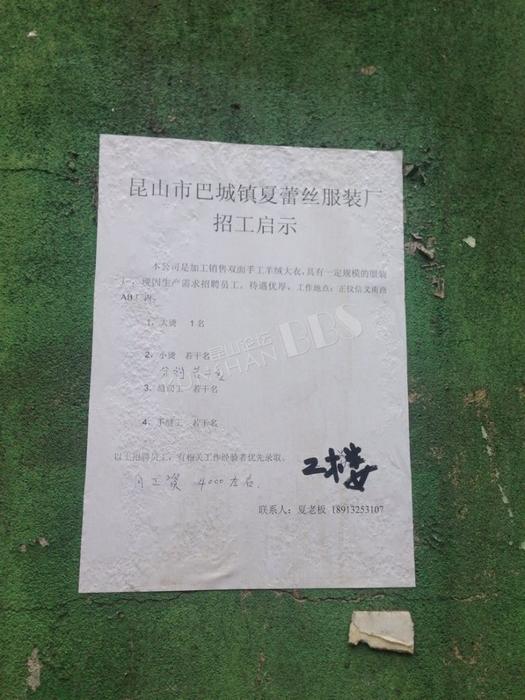 昆山市巴城镇夏蕾丝服装厂
招工启示
本公司是加工销售双面手工羊绒大衣，具有一定规模的服装
厂，现因生产需求招聘员工，待遇优厚。工作地点：正仪信义南路
AB厂内。
1、大烫 1名
2、小烫 若干名
若干名
3、 若干名
4、手缝工 若干名
以上招聘员工，有相关工作经验者优先录取。
月工资 4000左右.
2楼
联系人：夏老板 18913253107
昆山论坛
KUNSHAN BBS